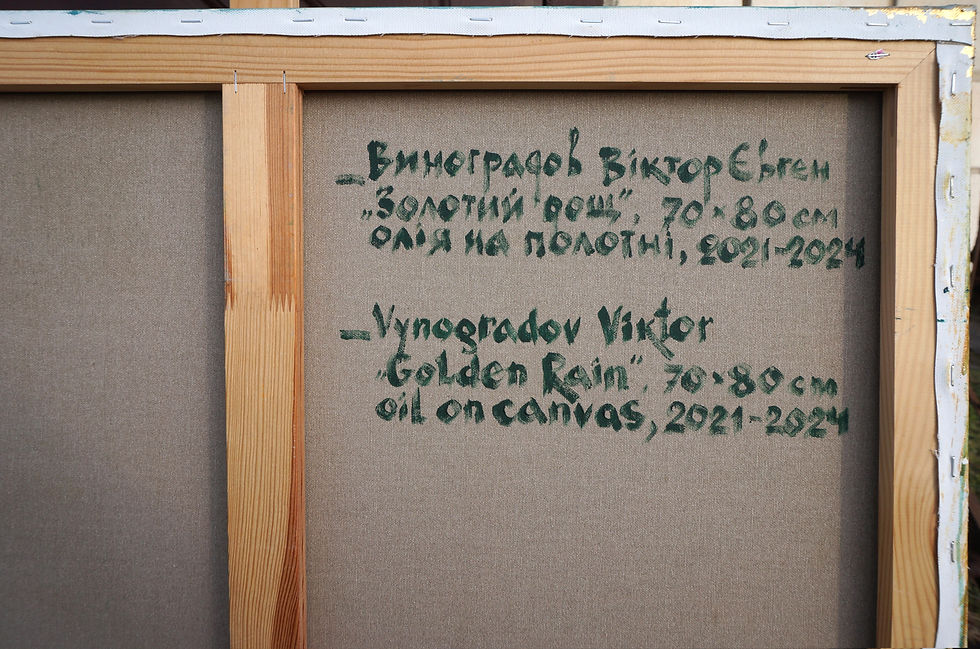 _Виноградов Віктор Євген
„Золотий рощ", 70×80 см
олія на полотні, 2021-2024
_Vynogradov Viktor
„Golden Rain", 70×80 cm
oil on canvas, 2021-2024